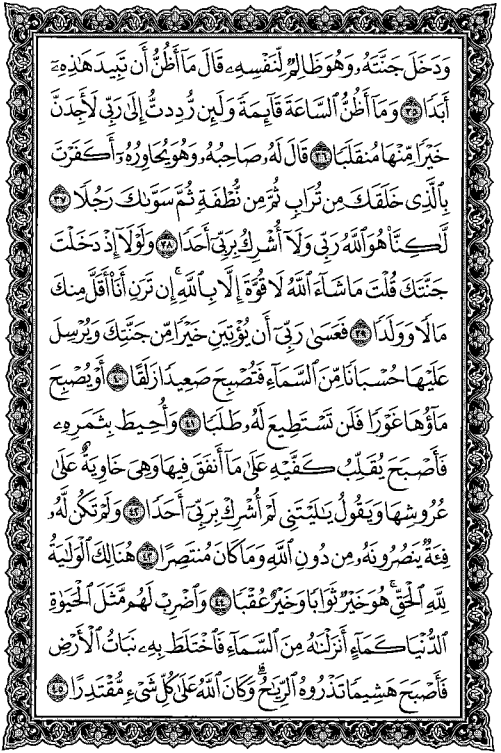 وَدَخَلَ جَنَّتَهُۥ وَهُوَ ظَالِمٌ لِّنَفْسِهِۦ قَالَ مَآ أَظُنُّ أَن تَبِيدَ هَٰذِهِۦٓ
أَبَدًا ۝٣٥ وَمَآ أَظُنُّ ٱلسَّاعَةَ قَآئِمَةً وَلَئِن رُّدِدتُّ إِلَىٰ رَبِّى لَأَجِدَنَّ
خَيْرًا مِّنْهَا مُنقَلَبًا ۝٣٦ قَالَ لَهُۥ صَاحِبُهُۥ وَهُوَ يُحَاوِرُهُۥٓ أَكَفَرْتَ
بِٱلَّذِى خَلَقَكَ مِن تُرَابٍ ثُمَّ مِن نُّطْفَةٍ ثُمَّ سَوَّىٰكَ رَجُلًا ۝٣٧
لَّٰكِنَّا۠ هُوَ ٱللَّهُ رَبِّى وَلَآ أُشْرِكُ بِرَبِّىٓ أَحَدًا ۝٣٨ وَلَوْلَآ إِذْ دَخَلْتَ
جَنَّتَكَ قُلْتَ مَا شَآءَ ٱللَّهُ لَا قُوَّةَ إِلَّا بِٱللَّهِ ۚ إِن تَرَنِ أَنَا۠ أَقَلَّ مِنكَ
مَالًا وَوَلَدًا ۝٣٩ فَعَسَىٰ رَبِّىٓ أَن يُؤْتِيَنِ خَيْرًا مِّن جَنَّتِكَ وَيُرْسِلَ
عَلَيْهَا حُسْبَانًا مِّنَ ٱلسَّمَآءِ فَتُصْبِحَ صَعِيدًا زَلَقًا ۝٤٠ أَوْ يُصْبِحَ
مَآؤُهَا غَوْرًا فَلَن تَسْتَطِيعَ لَهُۥ طَلَبًا ۝٤١ وَأُحِيطَ بِثَمَرِهِۦ
فَأَصْبَحَ يُقَلِّبُ كَفَّيْهِ عَلَىٰ مَآ أَنفَقَ فِيهَا وَهِىَ خَاوِيَةٌ عَلَىٰ
عُرُوشِهَا وَيَقُولُ يَٰلَيْتَنِى لَمْ أُشْرِكْ بِرَبِّىٓ أَحَدًا ۝٤٢ وَلَمْ تَكُن لَّهُۥ
فِئَةٌ يَنصُرُونَهُۥ مِن دُونِ ٱللَّهِ وَمَا كَانَ مُنتَصِرًا ۝٤٣ هُنَالِكَ ٱلْوَلَٰيَةُ
لِلَّهِ ٱلْحَقِّ ۚ هُوَ خَيْرٌ ثَوَابًا وَخَيْرٌ عُقْبًا ۝٤٤ وَٱضْرِبْ لَهُم مَّثَلَ ٱلْحَيَوٰةِ
ٱلدُّنْيَا كَمَآءٍ أَنزَلْنَٰهُ مِنَ ٱلسَّمَآءِ فَٱخْتَلَطَ بِهِۦ نَبَاتُ ٱلْأَرْضِ
فَأَصْبَحَ هَشِيمًا تَذْرُوهُ ٱلرِّيَٰحُ ۗ وَكَانَ ٱللَّهُ عَلَىٰ كُلِّ شَىْءٍ مُّقْتَدِرًا ۝٤٥